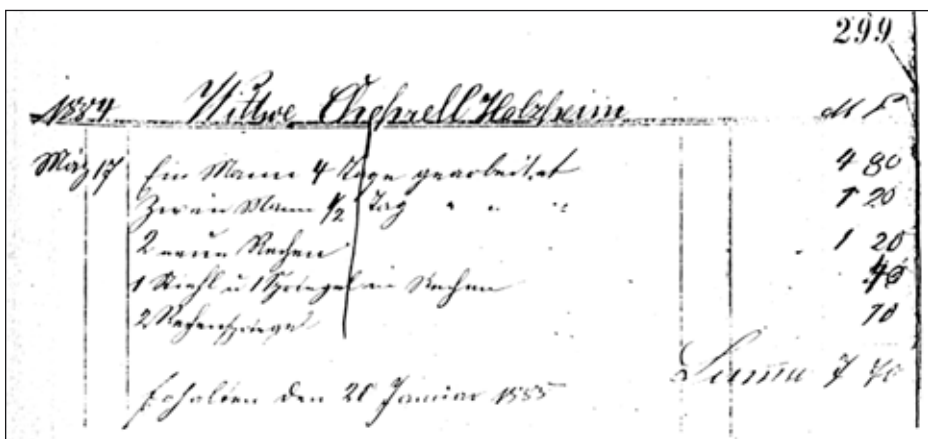 299
1884 Wittwe Holzheim M P
März 17 Ein Mann 4 Tage gearbeitet 4 80
Zwein Mann 1/2 Tag " " " 1 20
2 neue Rechen 1 20
1 Stiehl u 1 Spriegel in Rechen 40
2 Rechenspriegel 10
Summa 7 70
Erhalten den 28 Januar 1885